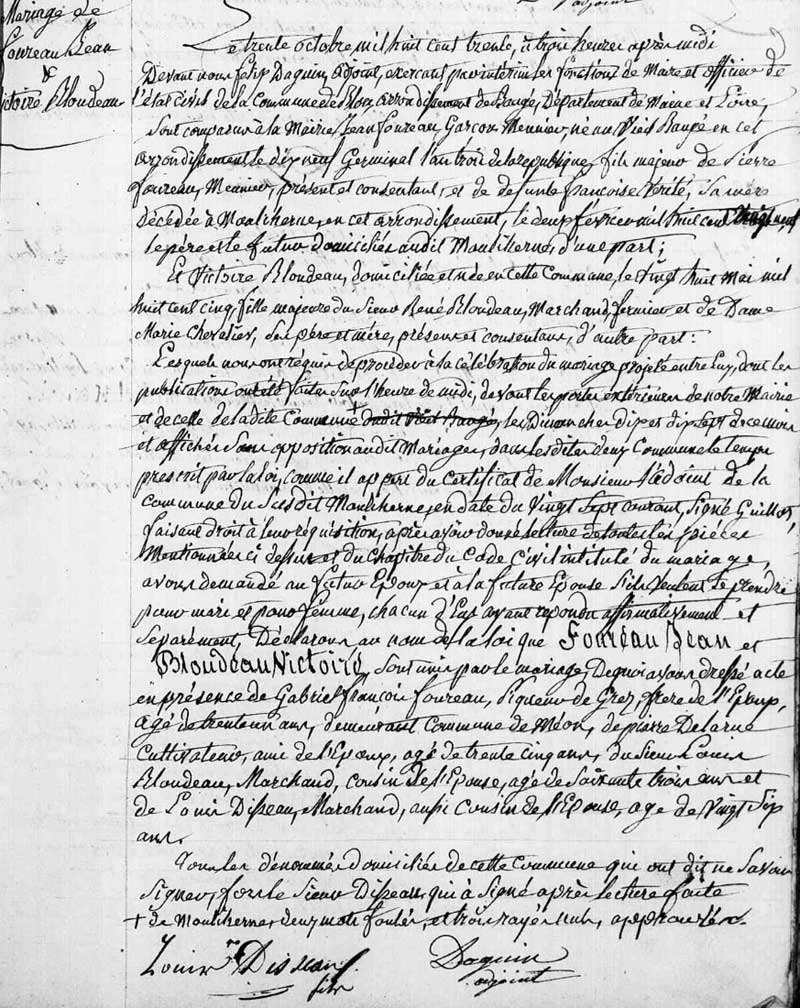 Mariage de
Foureau Jean
&
Victoire Bloudeau
Le trente octobre mil huit cent trente, à trois heures après midi
Devant nous felip Daguin, adjoint, exerçant par intérim les fonctions de Maire et officier de
l'état civil de la Commune de Blou, arrondissement de Baugé, Département de Maine et Loire,
Sont comparus à la Mairie, Jean foureau, Garçon Meunier, né au Vieil Baugé en cet
arrondissement le dix neuf Germinal l'an trois de la république, fils majeur de Pierre
foureau, Meunier, présent et consentant, et de defunte francoise Verité, sa mère
décédée à Mouliherne, en cet arrondissement, le deux février mil huit cent vingt neuf
le père et le futur domiciliés audit Mouliherne, d'une part;
Et Victoire Bloudeau, domiciliée et née en cette Commune, le vingt huit Mai mil
huit cent cinq, fille majeure du Sieur René Bloudeau, Marchand fermier et de Dame
Marie Chevalier, ses père et mère, présens et consentans, d'autre part:
Lesquels nous ont requis de procéder à la célébration du mariage projeté entre Eux, dont les
publications ont été faites sur l'heure de midi, devant les portes extérieures de notre Mairie
et de celle de la dite Commune + dudit Vieil Baugé, les Dimanches dix et dix sept de ce mois
et affichées sans opposition audit Mariage, dans les dites deux Communes le temps
prescrit par la loi, comme il appert du certificat de Monsieur l'adoint de la
Commune du susdit Mouliherne, en date du vingt sept courant, signé Guillot,
faisant droit à leur réquisition, après avoir donné lecture de toutes les pièces
Mentionnées ci dessus et du Chapitre du Code Civil intitulé du mariage,
avons demandé au futur Epoux et à la future Epouse s'ils veulent se prendre
pour mari et pour femme, chacun d'Eux ayant repondu affirmativement et
Séparément, Déclarons au nom de la loi que Foureau Jean et
Bloudeau Victoire, sont unis par le mariage, De quoi avons dressé acte
en présence de Gabriel françois foureau, Piqueur de Grez, frere de l'Epoux,
agé de trente un ans, demeurant Commune de Méon, de pierre Delarue
Cultivateur, ami de l'Epoux, agé de trente cinq ans, du Sieur Louis
Bloudeau, Marchand, cousin de l'Epouse, agé de Soixante trois ans et
de Louis Disseau, Marchand, aussi Cousin de l'Epouse, age de vingt six
ans.
Tous les dénommés domiciliés de cette commune qui ont dit ne savoir
Signer, fors le Sieur Disseau, qui à signé après lecture faite
+ de Mouliherne, deux mots foulés, et trois rayés nuls, approuvés.
Louis Disseau fils
Daguin
adjoint